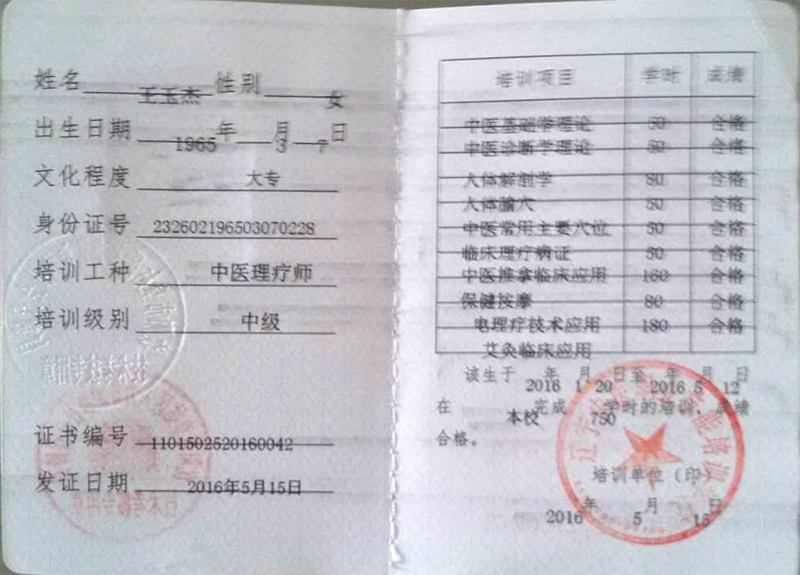 姓名 王玉杰 性别 女
出生日期 1965 年 3 月 7 日
文化程度 大专
身份证号 232602196503070228
培训工种 中医理疗师
培训级别 中级
证书编号 1101502520160042
发证日期 2016年5月15日
培训项目 学时 成绩
中医基础学理论 50 合格
中医诊断学理论 50 合格
人体解剖学 80 合格
人体腧穴 50 合格
中医常用主要穴位 50 合格
临床理疗病证 50 合格
中医推拿临床应用 160 合格
保健按摩 80 合格
电理疗技术应用 180 合格
艾灸临床应用
该生于 2016 年 1 月 20 日至 2016 年 5 月 12 日
在 本校 完成 750 学时的培训，成绩
合格。
培训单位（印）
2016 年 5 月 15 日